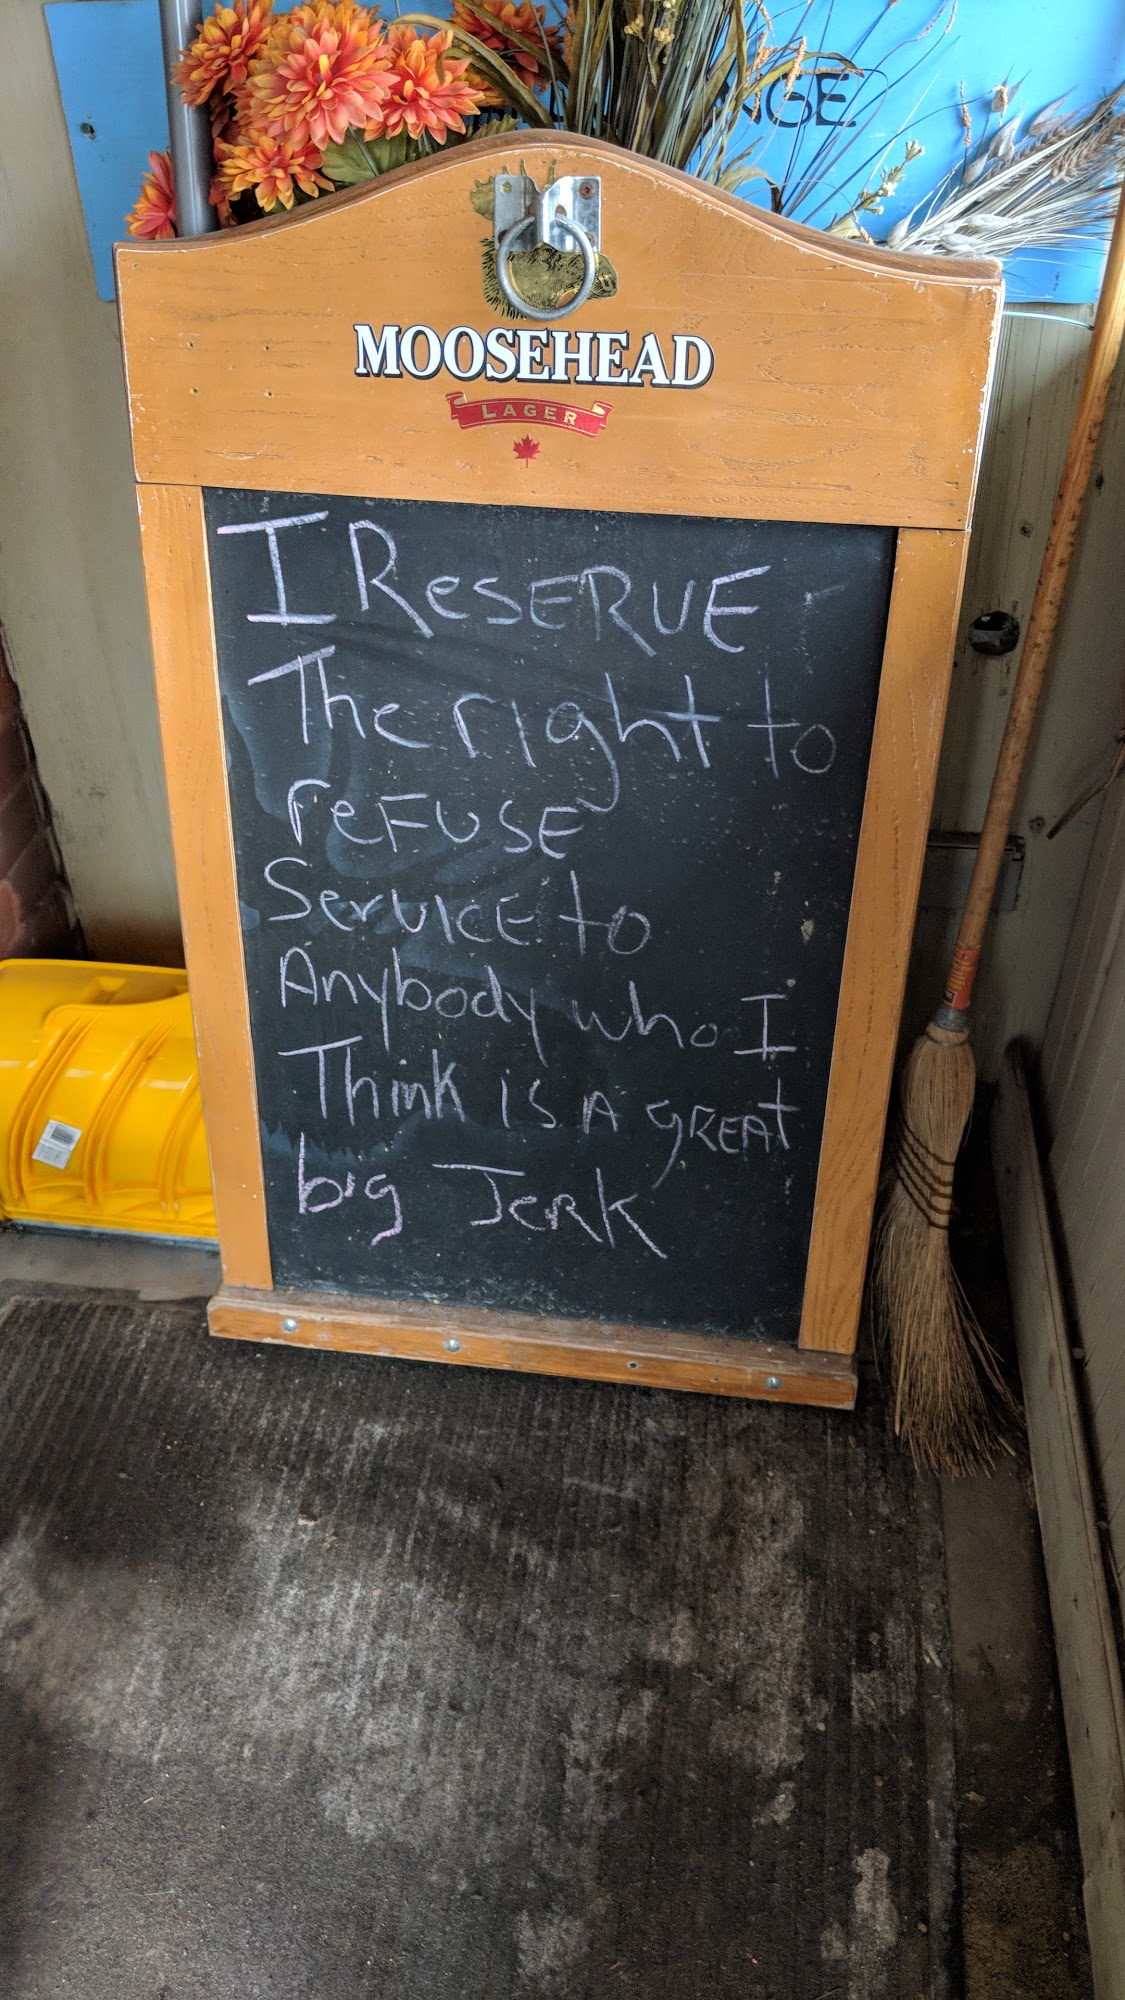 NGE
MOOSEHEAD
LAGER
I ReSERVE
The right to
reFUSE
Service to
Anybody who I
Think is A gREAt
big JerK